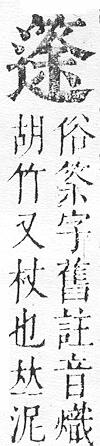 俗策字舊註音熾
胡竹又杖也𠀤泥